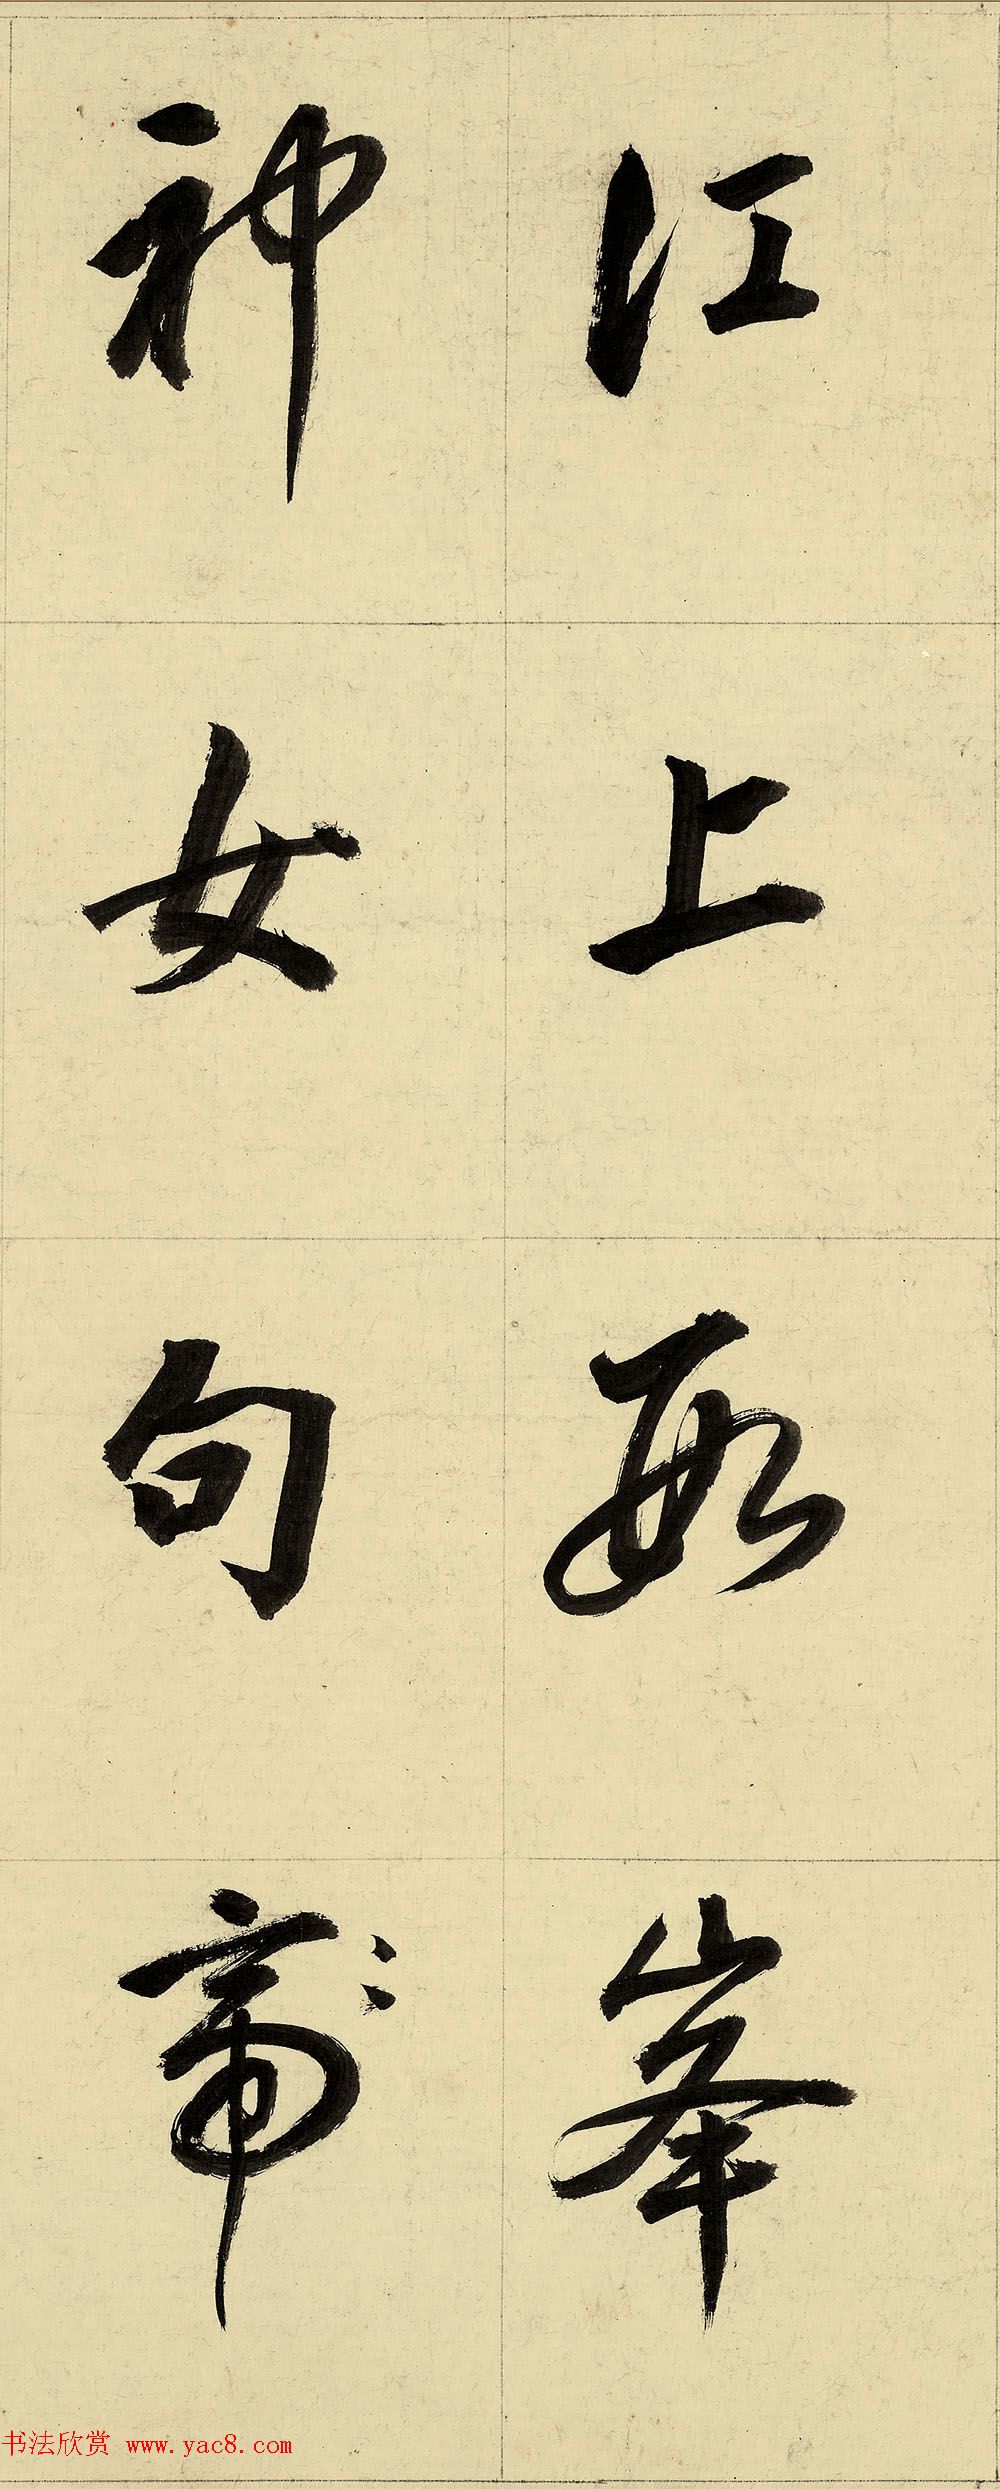 江上數峯
神女句帝
书法欣赏 www.yac8.com